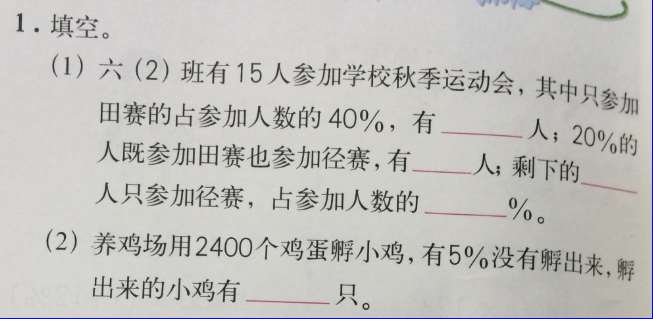 1.填空。
(1) 六(2)班有15人参加学校秋季运动会，其中只参加
田赛的占参加人数的40%，有______人；20%的
人既参加田赛也参加径赛，有______人；剩下的______
人只参加径赛，占参加人数的______%。
(2) 养鸡场用2400个鸡蛋孵小鸡，有5%没有孵出来，孵
出来的小鸡有______只。